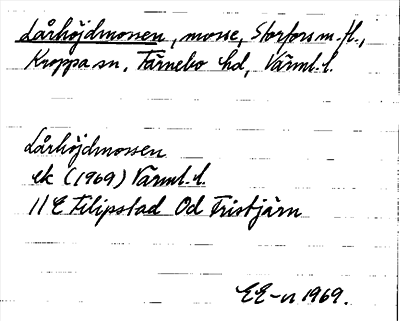 Lårhöjdmossen, mosse, Storfors m. fl.,
Kroppa sn, Färnebo hd, Värml. l.
Lårhöjdmossen
ek (1969) Värml. l.
11 E Filipstad 0d Tristjärn
EE-n 1969.